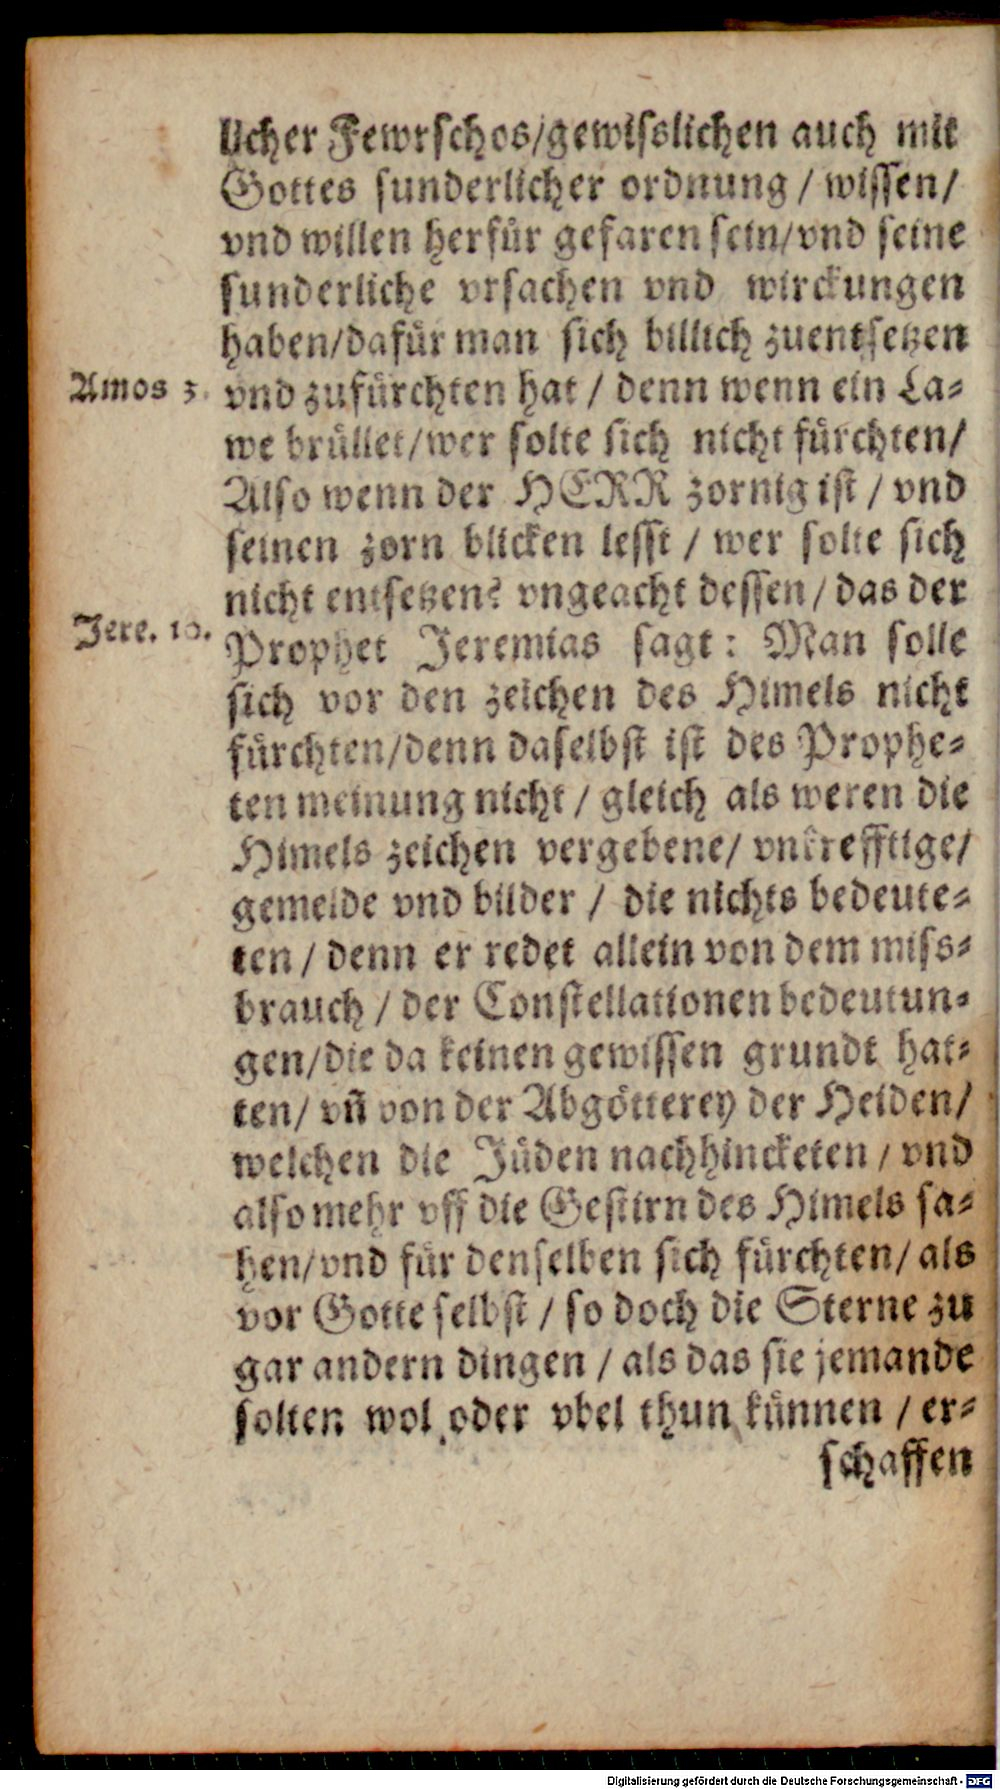 licher Fewrschos/gewisslichen auch mit
Gottes sunderlicher ordnung / wissen/
vnd willen herfür gefaren sein/vnd seine
sunderliche vrsachen vnd wirckungen
haben/dafür man sich billich zuentsetzen
Amos 3. vnd zufürchten hat / denn wenn ein La-
we brüllet/wer solte sich nicht fürchten/
Also wenn der HERR zornig ist / vnd
seinen zorn blicken lesst / wer solte sich
nicht entsetzen? vngeacht dessen / das der
Jere. 10. Prophet Jeremias sagt: Man solle
sich vor den zeichen des Himels nicht
fürchten/denn daselbst ist des Prophe-
ten meinung nicht / gleich als weren die
Himels zeichen vergebene/ vnkrefftige/
gemelde vnd bilder / die nichts bedeute-
ten / denn er redet allein von dem miss-
brauch / der Constellationen bedeutun-
gen/die da keinen gewissen grundt hat-
ten/ vñ von der Abgötterey der Heiden/
welchen die Jüden nachhincketen / vnd
also mehr vff die Gestirn des Himels sa-
hen/vnd für denselben sich fürchten/ als
vor Gotte selbst / so doch die Sterne zu
gar andern dingen / als das sie jemande
solten wol oder vbel thun künnen / er-
schaffen
Digitalisierung gefördert durch die Deutsche Forschungsgemeinschaft - DFG